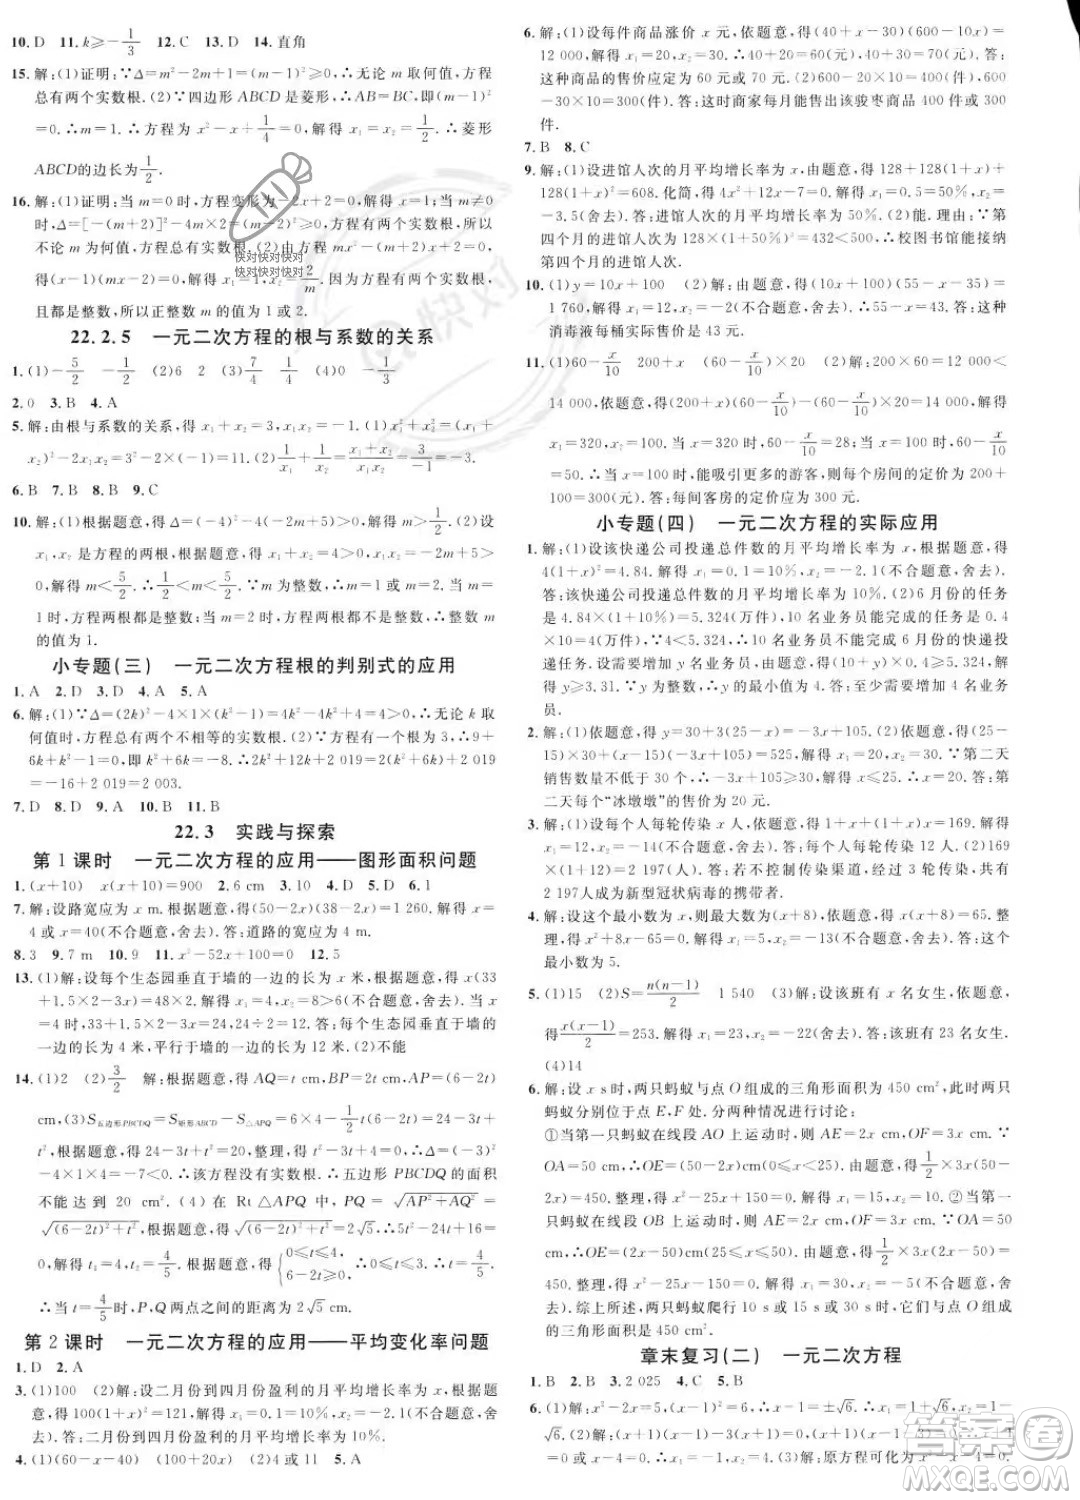 10. D 11. k≥-1/3 12. C 13. D 14. 直角
15. 解:(1)证明:∵Δ=m²-2m+1=(m-1)²≥0,∴无论 m 取何值,方程
总有两个实数根. (2)∵四边形 ABCD 是菱形,∴AB=BC,即(m-1)²
=0.∴m=1.∴方程为 x²-x+1/4=0,解得 x₁=x₂=1/2.∴菱形
ABCD的边长为1/2.
16. 解:(1)证明:当 m=0 时,方程变形为-2x+2=0,解得 x=1;当 m≠0
时,Δ=[-(m+2)]²-4m×2=(m-2)²≥0,∴方程有两个实数根.∴不
论 m 为何值,方程总有实数根. (2)由方程 mx²-(m+2)x+2=0,解
得(x-1)(mx-2)=0.解得 x₁=1,x₂=2/m. 因为方程有两个实数根,
且都是整数,所以正整数 m 的值为 1 或 2.
22.2.5 一元二次方程的根与系数的关系
1. (1)-5/2 -1/2 (2)6 2 (3)7/4 1/4 (4)0 -1/3
2. 0 3. B 4. A
5. 解:由根与系数的关系,得 x₁+x₂=3,x₁x₂=-1. (1)x₁²+x₂²=(x₁+
x₂)²-2x₁x₂=3²-2×(-1)=11. (2)1/x₁+1/x₂=(x₁+x₂)/(x₁x₂)=3/-1=-3.
6. B 7. B 8. B 9. C
10. 解:(1)根据题意,得 Δ=(-4)²-4(-2m+5)>0,解得 m>1/2. (2)设
x₁,x₂ 是方程的两根,根据题意,得 x₁+x₂=4>0,x₁x₂=-2m+5>
0.解得 m<5/2.∴1/2<m<5/2.∵m 为整数,∴m=1 或 m=2.当 m=
1 时,方程两根都是整数;当 m=2 时,方程两根都不是整数.∴整数 m
的值为 1.
小专题(三) 一元二次方程根的判别式的应用
1. A 2. D 3. D 4. A 5. A
6. 解:(1)∵Δ=(2k)²-4×1×(k²-1)=4k²-4k²+4=4>0,∴无论 k 取
何值时,方程总有两个不相等的实数根. (2)∵方程有一个根为 3,∴9+
6k+k²-1=0,即 k²+6k=-8.∴2k²+12k+2 019=2(k²+6k)+2 019
=-16+2 019=2 003.
7. D 8. D 9. A 10. B 11. B
22.3 实践与探索
第 1 课时 一元二次方程的应用——图形面积问题
1. (x+10) x(x+10)=900 2. 6 cm 3. 10 4. D 5. D 6. 1
7. 解:设路宽应为 x m. 根据题意,得(50-2x)(38-2x)=1 260.解得 x=
4 或 x=40(不合题意,舍去).答:道路的宽应为 4 m.
8. 3 9. 7 m 10. 9 11. x²-6x+8=0 12. 5
13. (1)解:设每个生态园垂直于墙的一边的长为 x 米,根据题意,得 x(33
+1.5×2-3x)=48×2.解得 x₁=4,x₂=8(不合题意,舍去).当 x=
4 时,33+1.5×2-3x=24,24÷2=12.答:每个生态园垂直于墙的
一边的长为 4 米,平行于墙的一边长为 12 米. (2)不能
14. (1)2 (2)3/2 解:根据题意,得 AQ=t cm,BP=2t cm,AP=(6-2t)
cm,(3)S五边形PBCDQ=S矩形ABCD-S△APQ=6×4-1/2t(6-2t)=24-3t+
t²,∴t²-3t+24=20,整理,得 t²-3t+4=0.∵Δ=(-3)²-
4×1×4=-7<0,∴该方程无实数根.∴五边形 PBCDQ 的面积
不能达到 20 cm². (4)在 Rt△APQ 中,PQ=√(AP²+AQ²)=
√((6-2t)²+t²),则√((6-2t)²+t²)=2√5.∴5t²-24t+16=
0.解得 t₁=4/5,t₂=4.∵{0≤t≤4, 6-2t≥0,∴0≤t≤3.∴t=4/5.
∴当 t=4/5时,P,Q 两点之间的距离为 2√5 cm.
第 2 课时 一元二次方程的应用——平均变化率问题
1. D 2. A
3. (1)100 (2)解:设二月份到四月份盈利的月平均增长率为 x,根据题意,
得 100(1+x)²=121,解得 x₁=0.1=10%,x₂=-2.1(不合题意,舍
去).答:二月份到四月份盈利的月平均增长率为 10%.
4. (1)(60-x-40) (300+20x) (2)4 或 11 5. A
6. 解:(1)设每件商品涨价 x 元,由题意,得(40+x-30)(600-10x)=
12 000,解得 x₁=20,x₂=30.∴40+x=60或40+x=70.答:
这种商品的售价应定为 60 元或 70 元. (2)600-20×10=400(件),600-
30×10=300(件).答:这时商家每月能售出该骏枣商品 400 件或300
件.
7. B 8. C
9. 解:(1)设进馆人次的月平均增长率为 x,由题意,得 128+128(1+x)+
128(1+x)²=608.化简,得 4x²+12x-7=0.解得 x₁=0.5=50%,x₂=
-3.5(舍去).答:进馆人次的月平均增长率为 50%. (2)能. 理由:∵第
四个月的进馆人次为 128×(1+50%)³=432<500,∴校图书馆能接纳
第四个月的进馆人次.
10. (1)y=10x+100 (2)解:由题意,得(10x+100)(55-x-35)=
1 760,整理,得 x²-10x-24=0.解得 x₁=12,x₂=-2(不合题意,舍去).∴55-x=43.答:这种
消毒液每桶实际售价是 43 元.
11. (1)60-x/10 200+x (60-x/10)×20 (2)解:∵60×200=12 000<
14 000,依题意,得(200+x)(60-x/10)-(60-x/10)×20=14 000,解得
x₁=320,x₂=100.当 x=320 时,60-x/10=28;当 x=100 时,60-x/10
=50.∴当 x=100 时,能吸引更多的游客,则每个房间的定价为 200+
100=300(元).答:每间客房的定价应为 300 元.
小专题(四) 一元二次方程的实际应用
1. 解:(1)设该快递公司投递总件数的月平均增长率为 x,根据题意,得
4(1+x)²=4.84.解得 x₁=0.1=10%,x₂=-2.1(不合题意,舍去).
答:该快递公司投递总件数的月平均增长率为 10%. (2)6 月份的任务
是 4.84×(1+10%)=5.324(万件),10 名业务员能完成的任务是 0.4
×10=4(万件).∵4<5.324,∴10 名业务员不能完成 6 月份的快递投
递任务.设需要增加 y 名业务员,根据题意,得 0.4(y+10)≥5.324,
解得 y≥3.31.∵y 为整数,∴y 的最小值为 4.答:至少需要增加 4 名业务
员.
2. 解:(1)依题意,得 y=30+3(25-x)=-3x+105. (2)依题意,得(25-
15)×30+(x-15)(-3x+105)=525,解得 x₁=20,x₂=30.∵第二天
销售数量不低于 30 个,∴-3x+105≥30,解得 x≤25.∴x=20.答:第
二天每个“冰墩墩”的售价为 20 元.
3. 解:(1)设每个人每轮传染 x 人,依题意,得 1+x+(1+x)x=169.解得
x₁=12,x₂=-14(不合题意,舍去).答:每个人每轮传染 12 人. (2)169
×(1+12)=2 197(人).答:若不控制传染渠道,经过 3 轮传染,共有
2 197人成为新型冠状病毒的携带者.
4. 解:设这个最小数为 x,则最大数为(x+8),依题意,得 x(x+8)=65.整
理,得 x²+8x-65=0.解得 x₁=5,x₂=-13(不合题意,舍去).答:这个
最小数为 5.
5. (1)15 (2)S=n(n-1)/2 1 540 (3)解:设该班有 x 名女生,依题意,
得x(x-1)/2=253.解得 x₁=23,x₂=-22(舍去).答:该班有 23 名女生.
(4)14
6. 解:设 x s时,两只蚂蚁与点 O 组成的三角形面积为 450 cm²,此时两只
蚂蚁分别位于点 E,F 处.分两种情况进行讨论:
①当第一只蚂蚁在线段 AO 上运动时,AE=2x cm,OF=3x cm.
∵OA=50 cm,∴OE=(50-2x)cm(0≤x<25).由题意,得1/2×3x(50-
2x)=450.整理,得 x²-25x+150=0.解得 x₁=15,x₂=10.②当第一
只蚂蚁在线段 OB 上运动时,AE=2x cm,OF=3x cm.∵OA=50
cm,∴OE=(2x-50)cm(25≤x≤50).由题意,得1/2×3x(2x-50)=
450.整理,得 x²-25x-150=0.解得 x₁=30,x₂=-5(不合题意,舍
去).综上所述,两只蚂蚁爬行 10 s或15 s或30 s时,它们与点 O组成
的三角形面积是 450 cm².
章末复习(二) 一元二次方程
1. B 2. B 3. 2 025 4. C 5. B
6. (1)解:x²-2x=5,x²-2x+1=6,(x-1)²=6,x-1=±√6,x₁=1+√6,
=0 或 x-4=0. (3)解:原方程可化为 x²+4x-
快对快对快对
快对快对快对
快对
答案圈
MXQE.COM